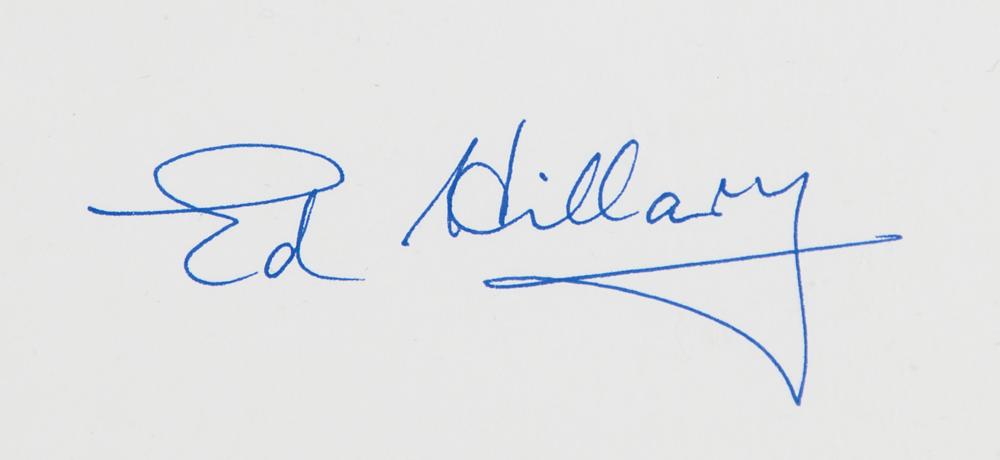 Ed Hillary